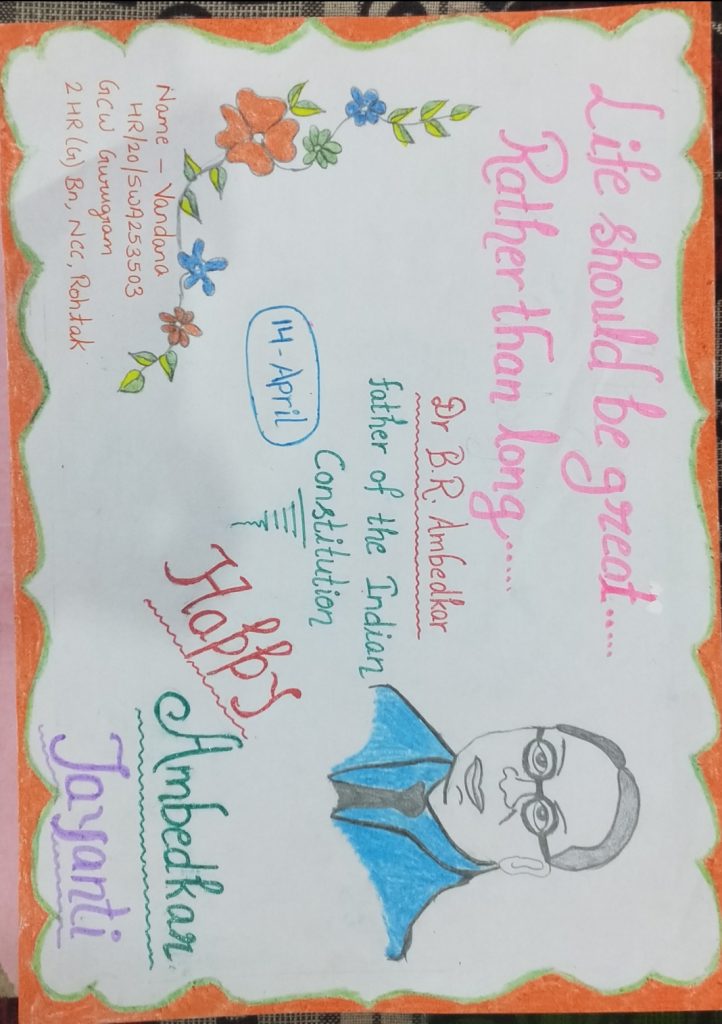 Life should be great.....
Rather than long......
Dr B.R. Ambedkar
father of the Indian
Constitution
14-April
Happy
Ambedkar
Jayanti
Name - Vandana
HR/20/SWA253503
GCW Gurugram
2 HR (G) Bn, Ncc, Rohtak